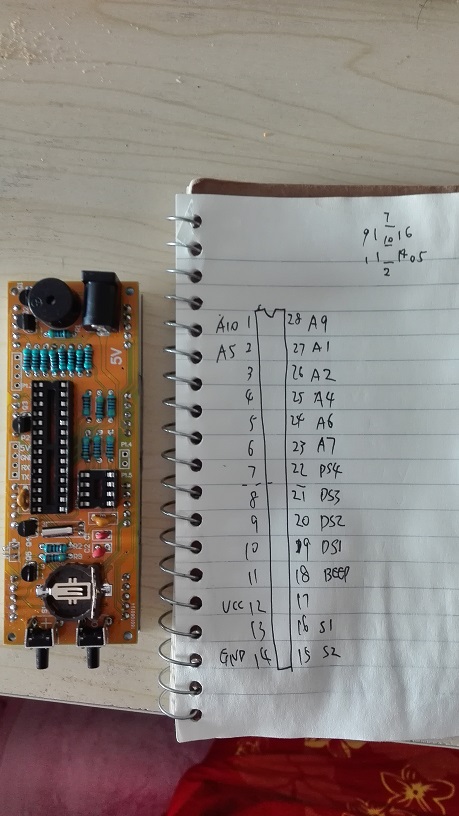 7
9 1 _ 16
10
1 1 _ 14 05
2
A10 1 28 A9
A5 2 27 A1
3 26 A2
4 25 A4
5 24 A6
6 23 A7
7 22 DS4
8 21 DS3
9 20 DS2
10 19 DS1
11 18 BEEP
VCC 12 17
13 16 S1
GND 14 15 S2
5V